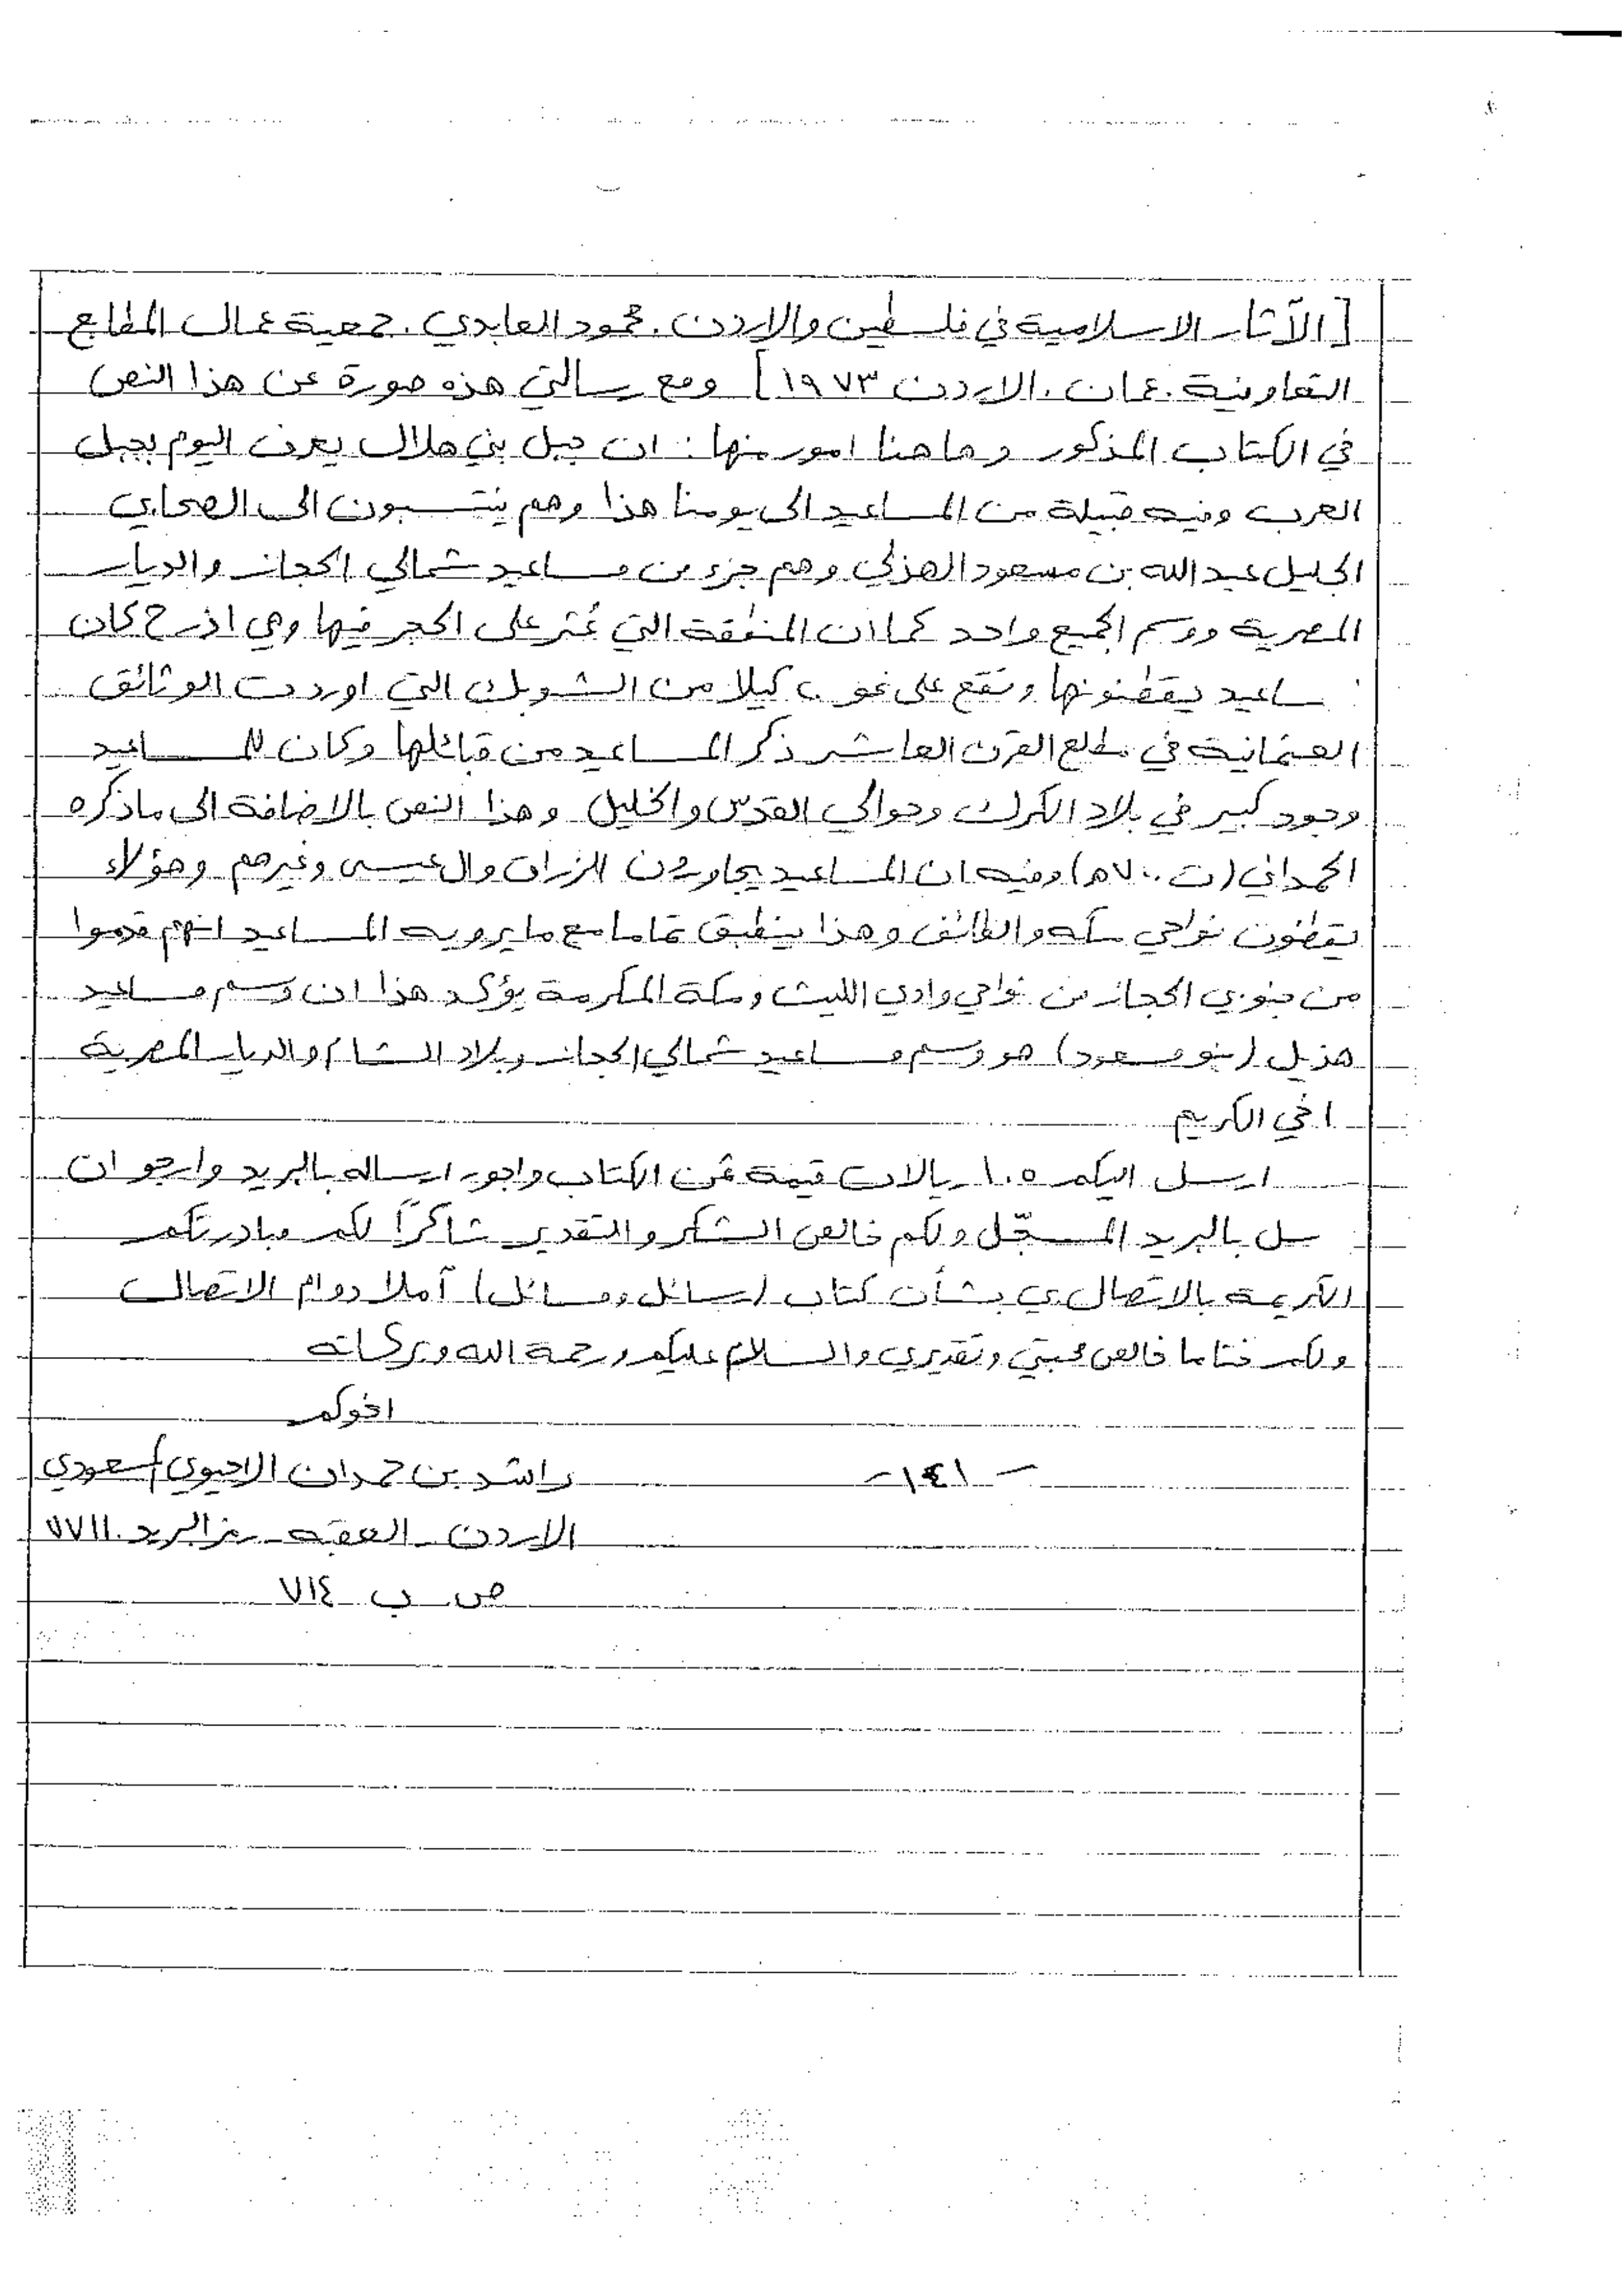 [الآثار الاسلامية في فلسطين والاردن. محمود العابدي. جمعية عمال المطابع
التعاونية. عمان. الاردن ١٩٧٣] ومع رسالتي هذه صورة عن هذا النص
في الكتاب المذكور وهاهنا امور منها: ان جبل بني هلال يعرف اليوم بجبل
العرب وفيه قبيلة من المساعيد الى يومنا هذا وهم ينتسبون الى الصحابي
الجليل عبدالله بن مسعود الهذلي وهم جزء من مساعيد شمالي الحجاز والديار
المصرية ووسم الجميع واحد كما ان المنطقة التي عُثر على الحجر فيها وهي اذرح كان
ساعيد يقطنونها وتقع على نحو ٢٠ كيلا من الشوبك التي اوردت الوثائق
العثمانية في مطلع القرن العاشر ذكر المساعيد من قبائلها وكان للمساعيد
وجود كبير في بلاد الكرك وحوالي القدس والخليل وهذا النص بالاضافة الى ماذكره
الحمداني (ت ٧٠٠ه) وفيه ان المساعيد يجاورون الزراق وال عيسى وغيرهم وهؤلاء
يقطنون نواحي مكه والطائف وهذا ينطبق تماما مع ما يرويه المساعيد انهم قدموا
من جنوبي الحجاز من نواحي وادي الليث ومكة المكرمة يؤكد هذا ان وسم مساعيد
هذيل (بنو مسعود) هو وسم مساعيد شمالي الحجاز وبلاد الشام والديار المصرية
اخي الكريم
ارسل اليكم ١٠٥ ريالات قيمة ثمن الكتاب واجور ارساله بالبريد وارجو ان
سل بالبريد المسجّل ولكم خالص الشكر والتقدير شاكرًا لكم مبادرتكم
الكريمه بالاتصال بي بشأن كتاب (رسائل ومسائل) آملا دوام الاتصال
ولكم ختاما خالص محبتي وتقديري والسلام عليكم ورحمة الله وبركاته
اخوكم
راشد بن حمدان الاحيوي المسعودي
- ١٤١ -
الاردن - العقبه - رمز البريد ٧٧١١٠
ص ب ٧١٤